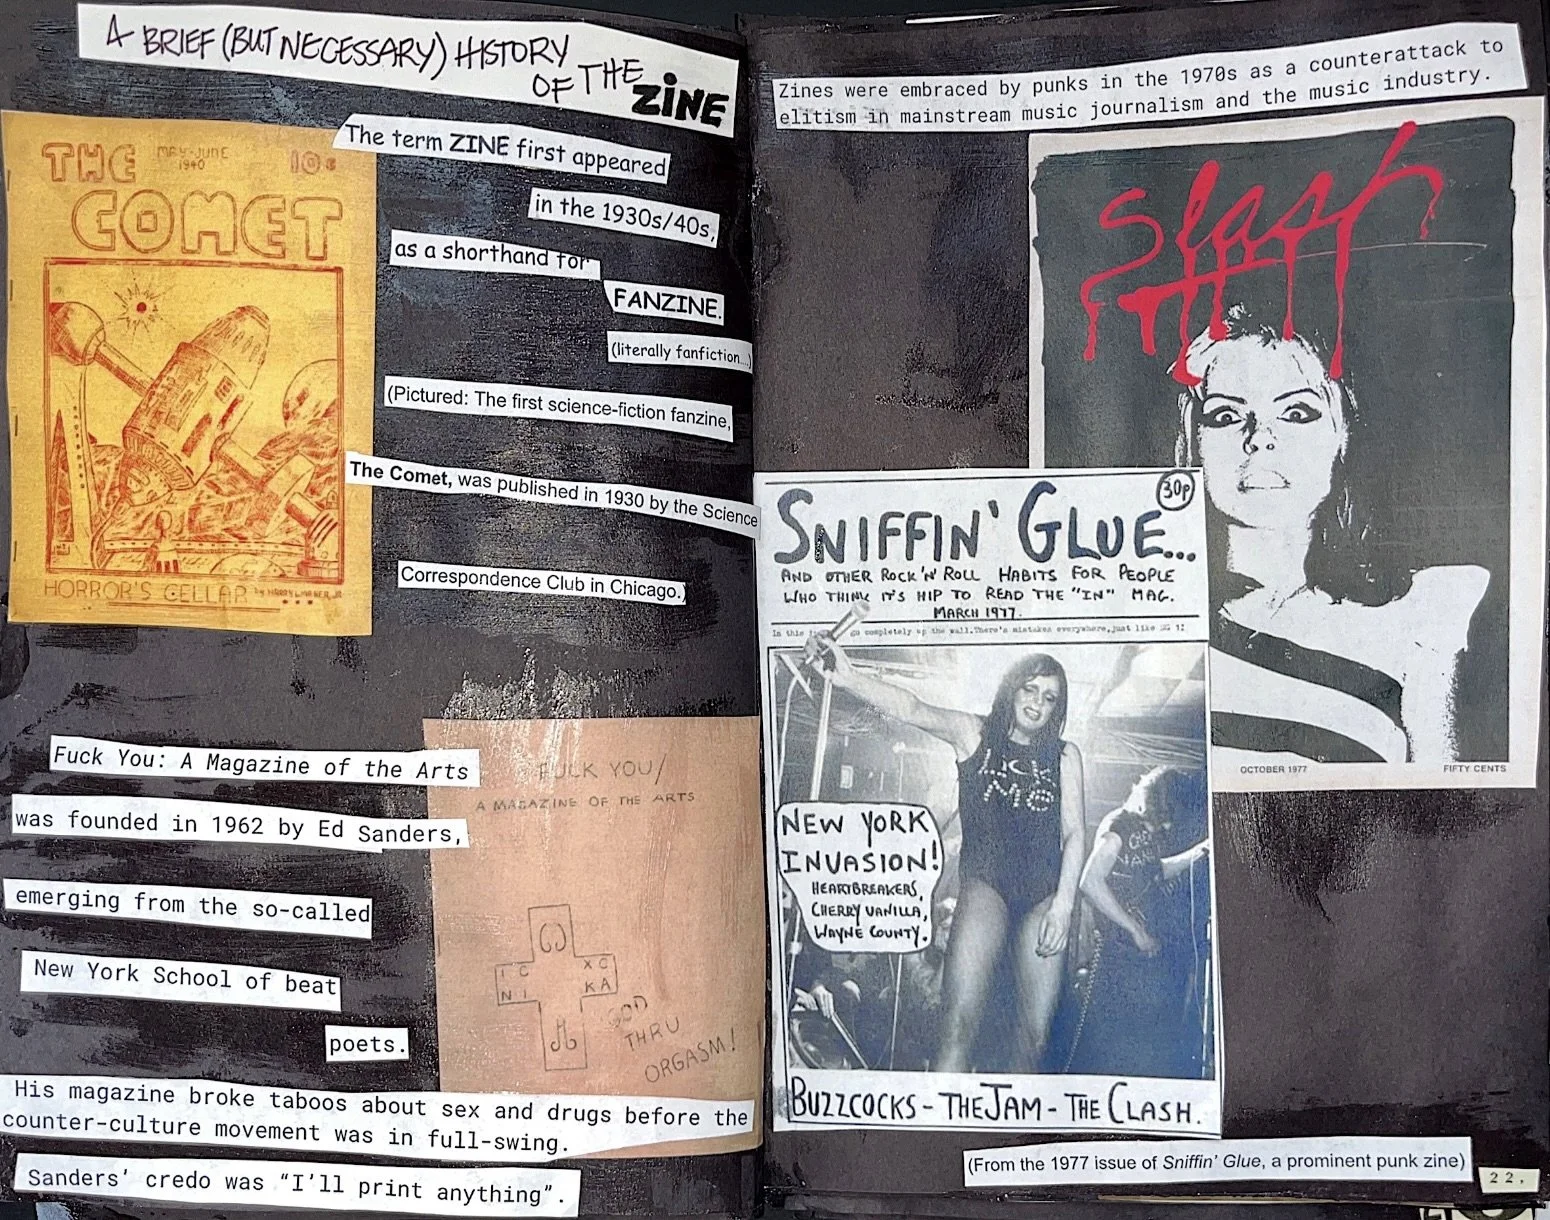 A BRIEF (BUT NECESSARY) HISTORY
OF THE
ZiNE
THE
MAY-JUNE
1940
10¢
COMET
HORROR'S CELLAR BY HARRY WARNER, JR
The term ZINE first appeared
in the 1930s/40s,
as a shorthand for
FANZINE.
(literally fanfiction...)
(Pictured: The first science-fiction fanzine,
The Comet, was published in 1930 by the Science
Correspondence Club in Chicago.)
Fuck You: A Magazine of the Arts
was founded in 1962 by Ed Sanders,
emerging from the so-called
New York School of beat
poets.
His magazine broke taboos about sex and drugs before the
counter-culture movement was in full-swing.
Sanders' credo was "I'll print anything".
FUCK YOU/
A MAGAZINE OF THE ARTS
IC XC
NI KA
GOD
THRU
ORGASM!
Zines were embraced by punks in the 1970s as a counterattack to
elitism in mainstream music journalism and the music industry.
Slash
OCTOBER 1977
FIFTY CENTS
30p
SNIFFIN' GLUE...
AND OTHER ROCK 'N' ROLL HABITS FOR PEOPLE
WHO THINK IT'S HIP TO READ THE "IN" MAG.
MARCH 1977.
In this go completely up the wall.There's mistakes everywhere,just like
LICK
ME
NEW YORK
INVASION!
HEARTBREAKERS,
CHERRY VANILLA,
WAYNE COUNTY.
BUZZCOCKS - THE JAM - THE CLASH.
(From the 1977 issue of Sniffin' Glue, a prominent punk zine)
22.